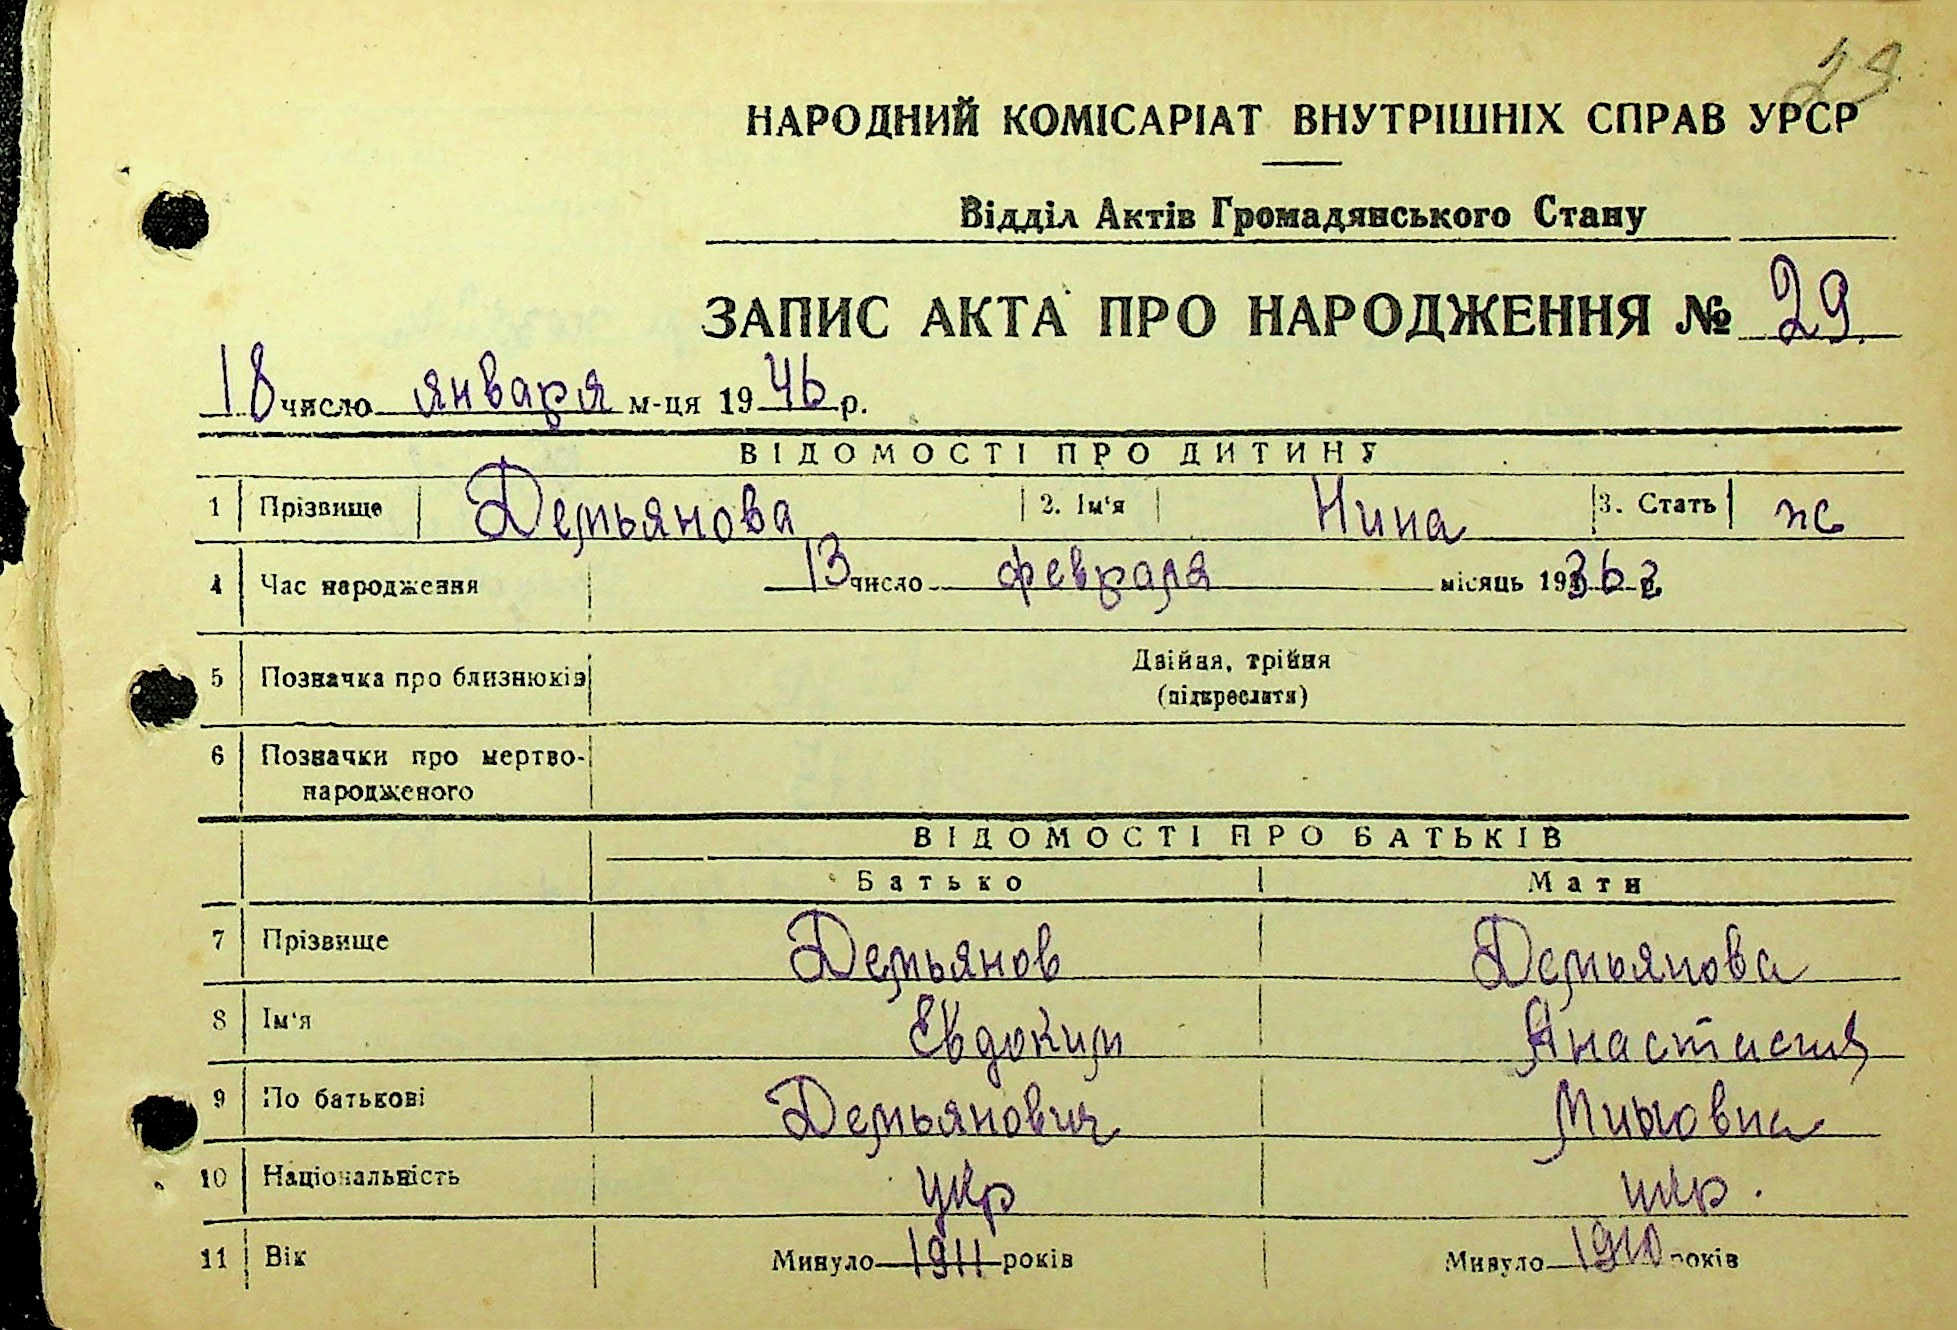 29
НАРОДНИЙ КОМІСАРІАТ ВНУТРІШНІХ СПРАВ УРСР
Відділ Актів Громадянського Стану
ЗАПИС АКТА ПРО НАРОДЖЕННЯ № 29.
18 число января м-ця 1946 р.
ВІДОМОСТІ ПРО ДИТИНУ
1 Прізвище Демьянова 2. Ім'я Нина 3. Стать ж
4 Час народження 13 число февраля місяць 1936 г.
5 Позначка про близнюків Двійня, трійня
(підкреслити)
6 Позначки про мертво-
народженого
ВІДОМОСТІ ПРО БАТЬКІВ
Батько Мати
7 Прізвище Демьянов Демьянова
8 Ім'я Евдоким Анастасия
9 По батькові Демьянович
10 Національність укр укр.
11 Вік Минуло 1911 років Минуло 1910 років